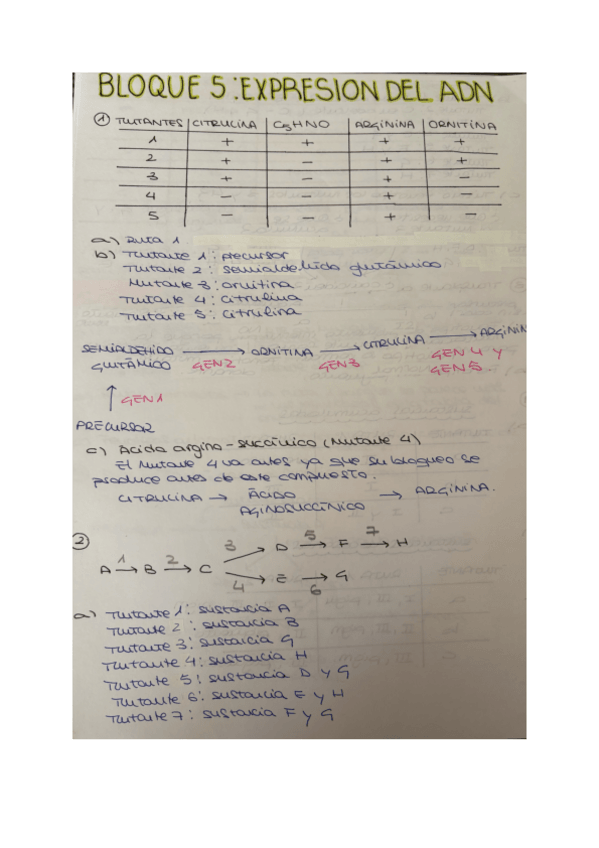 BLOQUE 5: EXPRESION DEL ADN
① MUTANTES CITRULINA C5HNO ARGININA ORNITINA
1 + + + +
2 + - + +
3 + - + -
4 - - + -
5 - - + -
a) Ruta 1
b) Mutante 1: precursor
Mutante 2: semialdehido glutámico
Mutante 3: ornitina
Mutante 4: citrulina
Mutante 5: citrulina
SEMIALDEHIDO GLUTÁMICO → ORNITINA → CITRULINA → ARGININ
GEN 2 GEN 3 GEN 4 Y GEN 5.
↑ GEN 1
PRECURSOR
c) Acido argino-succínico (Mutante 4)
El Mutante 4 va antes ya que su bloqueo se
produce antes de este compuesto.
CITRULINA → ÁCIDO AGINOSUCCÍNICO → ARGININA.
② A 1→ B 2→ C 3→ D 5→ F 7→ H
4→ E 6→ G
a) Mutante 1: sustancia A
Mutante 2: sustancia B
Mutante 3: sustancia G
Mutante 4: sustancia H
Mutante 5: sustancia D y G
Mutante 6: sustancia E y H
Mutante 7: sustancia F y G